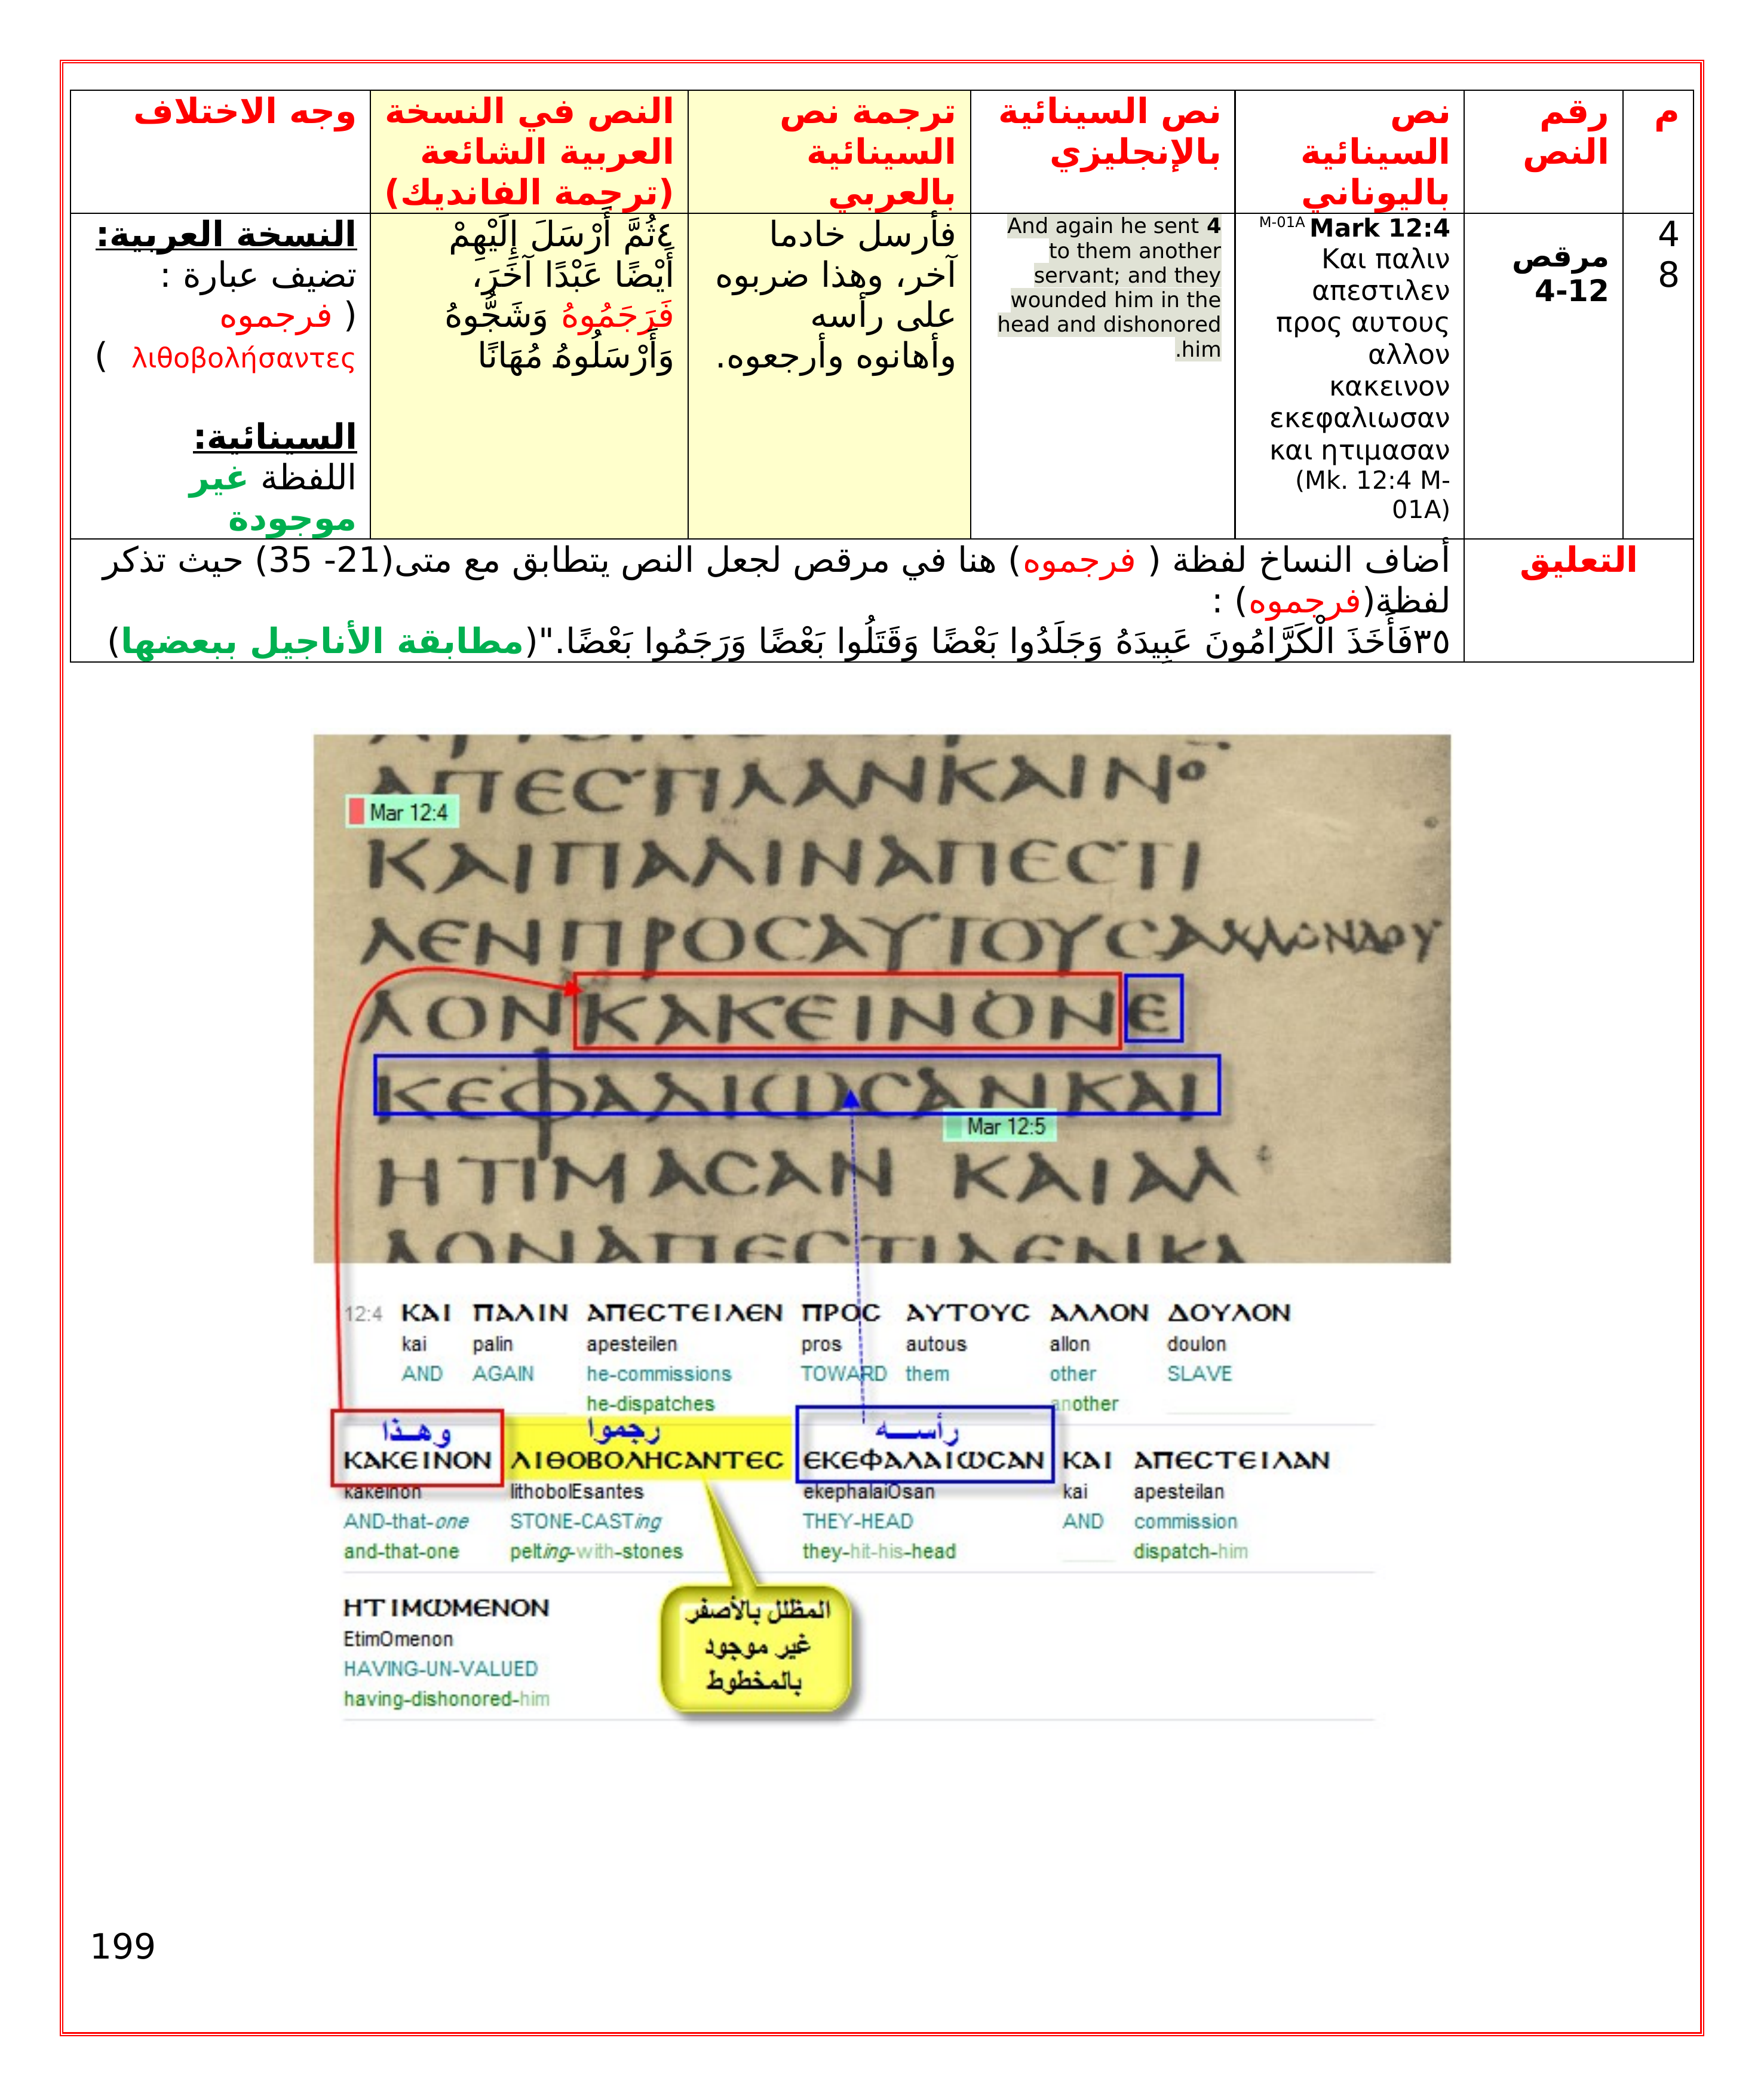 م
رقم النص
نص السينائية باليوناني
نص السينائية بالإنجليزي
ترجمة نص السينائية بالعربي
النص في النسخة العربية الشائعة (ترجمة الفانديك)
وجه الاختلاف
4
8
مرقص
4-12
Mark 12:4 M-01A
Και παλιν
απεστιλεν
προς αυτους
αλλον
κακεινον
εκεφαλιωσαν
και ητιμασαν
(Mk. 12:4 M-
01A)
And again he sent 4
to them another
servant; and they
wounded him in the
head and dishonored
him.
فأرسل خادما
آخر، وهذا ضربوه
على رأسه
وأهانوه وأرجعوه.
٤ثُمَّ أَرْسَلَ إِلَيْهِمْ
أَيْضًا عَبْدًا آخَرَ،
فَرَجَمُوهُ وَشَجُّوهُ
وَأَرْسَلُوهُ مُهَانًا
النسخة العربية:
تضيف عبارة :
( فرجموه
λιθοβολήσαντες )
السينائية:
اللفظة غير
موجودة
التعليق
أضاف النساخ لفظة ( فرجموه) هنا في مرقص لجعل النص يتطابق مع متى(21- 35) حيث تذكر
لفظة(فرجموه) :
٣٥فَأَخَذَ الْكَرَّامُونَ عَبِيدَهُ وَجَلَدُوا بَعْضًا وَقَتَلُوا بَعْضًا وَرَجَمُوا بَعْضًا."(مطابقة الأناجيل ببعضها)
ΑΠΕCΤΙΛΑΝΚΑΙΝΟ
Mar 12:4
ΚΑΙΠΑΛΙΝΑΠΕCΤΙ
ΛΕΝΠΡΟCΑΥΤΟΥCΑΛΛΟΝΔΟΥ
ΛΟΝΚΑΚΕΙΝΟΝΕ
ΚΕΦΑΛΙΩCΑΝΚΑΙ
Mar 12:5
ΗΤΙΜΑCΑΝ ΚΑΙΑΛ
ΛΟΝΑΠΕCΤΙΛΕΝΚΑ
12:4 ΚΑΙ ΠΑΛΙΝ ΑΠΕCΤΕΙΛΕΝ ΠΡΟC ΑΥΤΟΥC ΑΛΛΟΝ ΔΟΥΛΟΝ
kai palin apesteilen pros autous allon doulon
AND AGAIN he-commissions TOWARD them other SLAVE
he-dispatches another
وهذا رجموا رأسه
ΚΑΚΕΙΝΟΝ ΛΙΘΟΒΟΛΗCΑΝΤΕC ΕΚΕΦΑΛΑΙΩCΑΝ ΚΑΙ ΑΠΕCΤΕΙΛΑΝ
kakeinon lithobolEsantes ekephalaiOsan kai apesteilan
AND-that-one STONE-CASTing THEY-HEAD AND commission
and-that-one pelting-with-stones they-hit-his-head dispatch-him
ΗΤΙΜΩΜΕΝΟΝ
EtimOmenon
HAVING-UN-VALUED
having-dishonored-him
المظلل بالأصفر
غير موجود
بالمخطوط
199